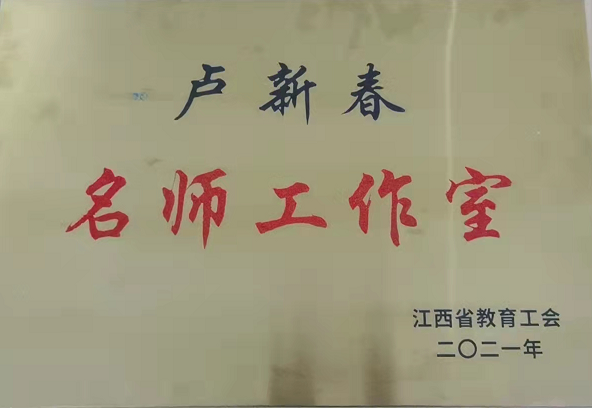 卢新春
名师工作室
江西省教育工会
二〇二一年